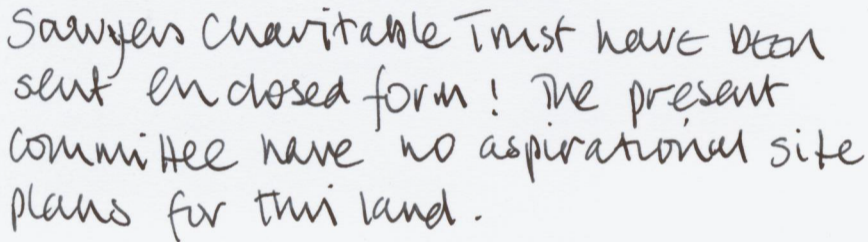 Sawyers Charitable Trust have been
sent enclosed form! The present
committee have no aspirational site
plans for this land.